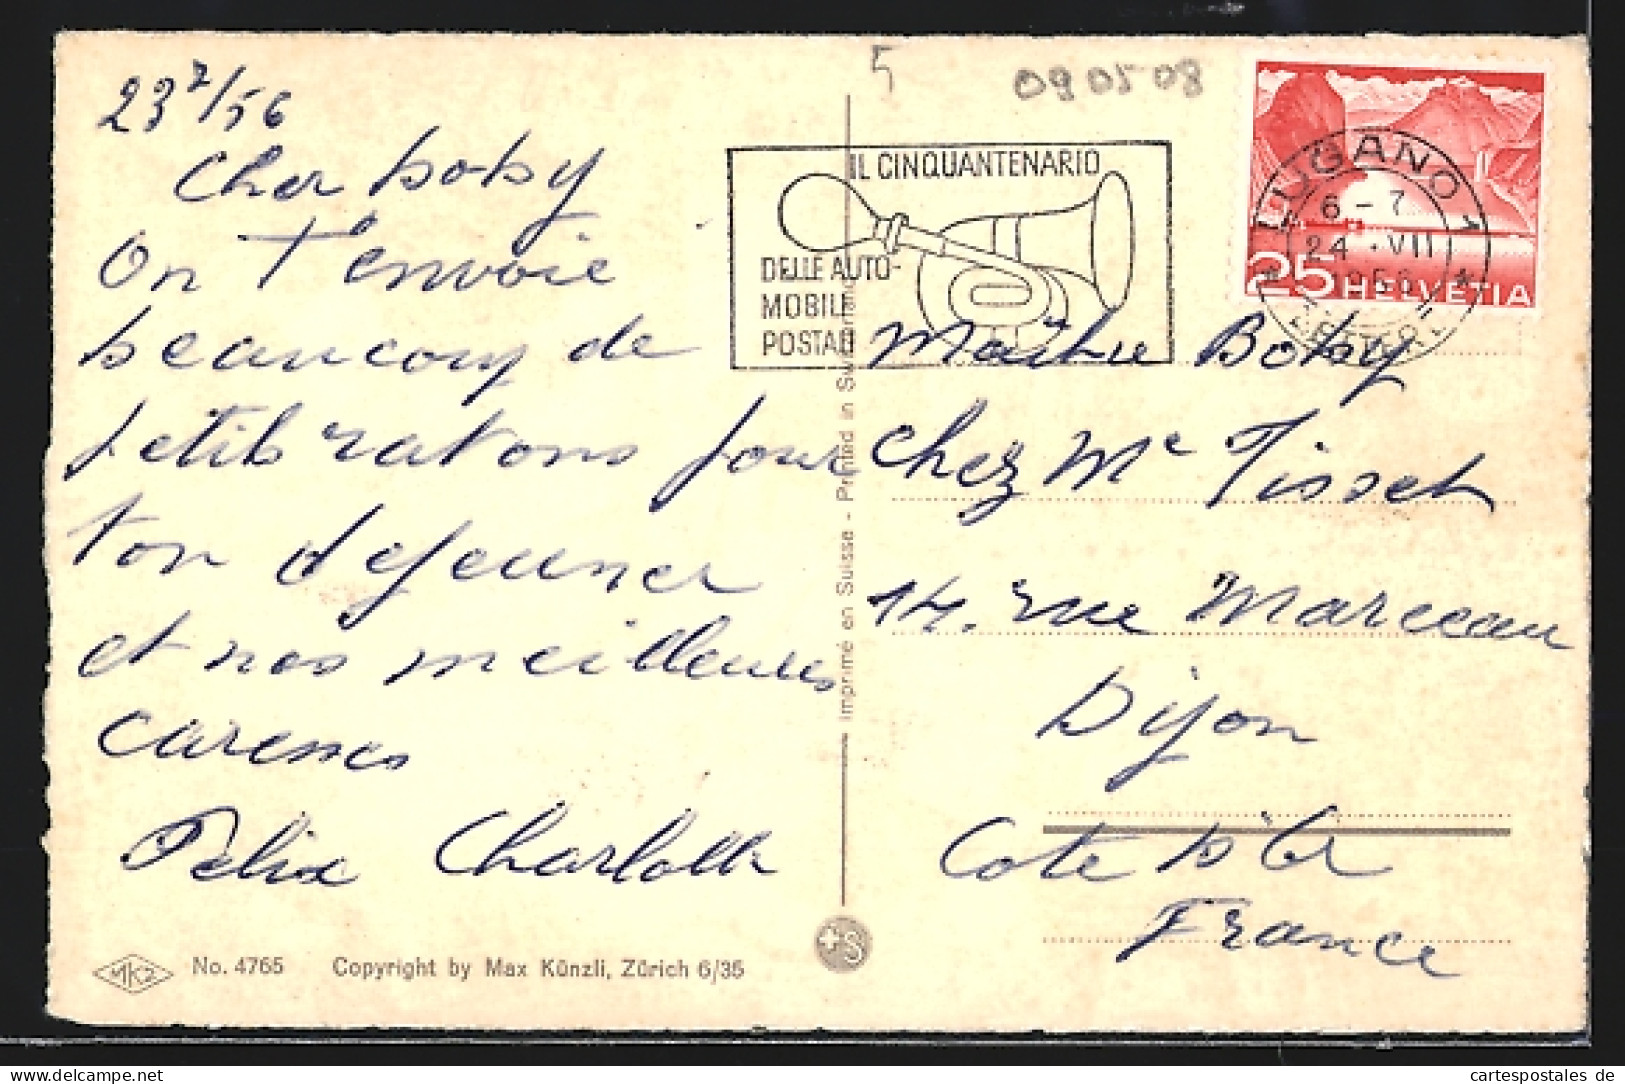 23 7/56
Cher Boby
On t'envoie
beaucoup de
petits ratons pour
ton dejeuner
et nos meilleures
caresses
Felix Charlotte
No. 4765 Copyright by Max Künzli, Zürich 6/35
Imprimé en Suisse - Printed in Switzerland
5
090508
IL CINQUANTENARIO
DELLE AUTO-
MOBILI
POSTALI
LUGANO 1
6 - 7
24 . VII
1956
LETTERE
25 HELVETIA
Maître Boby
chez Me Tisset
14. rue Marceau
Dijon
Cote d'Or
France
+S
MKZ
www.delcampe.net
cartespostales de